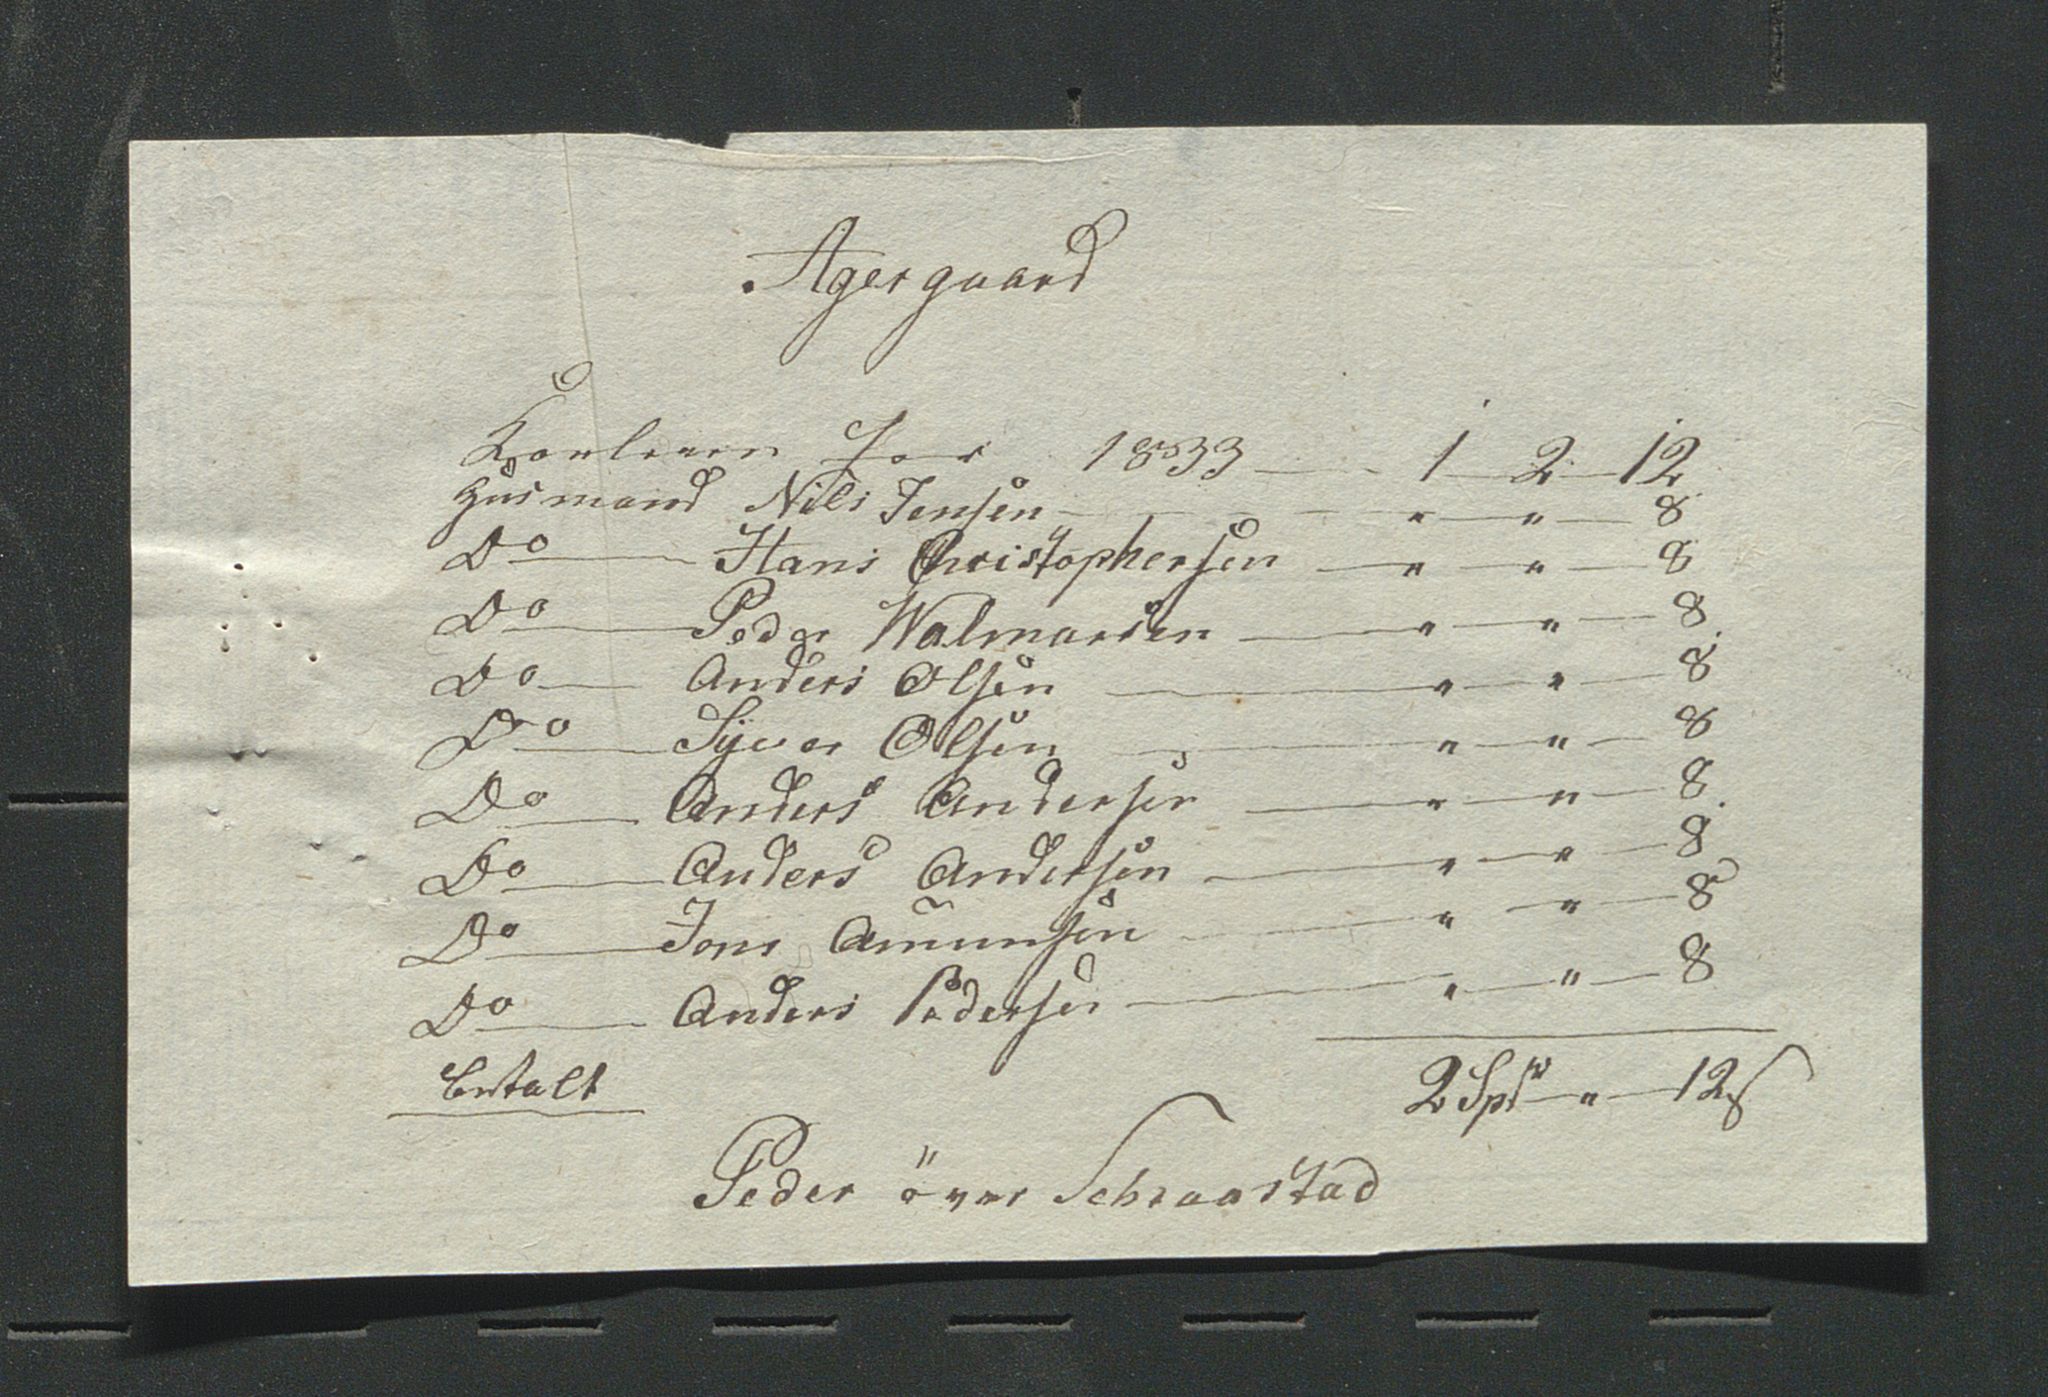 Agergaard
Kornleien for 1833 — 1 — 2 — 12
Husmand Nils Jensen — " — " — 8
Do — Hans Christophersen — " — " — 8
Do — Peder Walmarsen — " — " — 8
Do — Anders Olsen — " — " — 8
Do — Syver Olsen — " — " — 8
Do — Anders Andersen — " — " — 8
Do — Anders Andersen — " — " — 8
Do — Jons Amunsen — " — " — 8
Do — Anders Pedersen — " — " — 8
betalt 2 Spd — " — 12 s
Peder över Schraastad